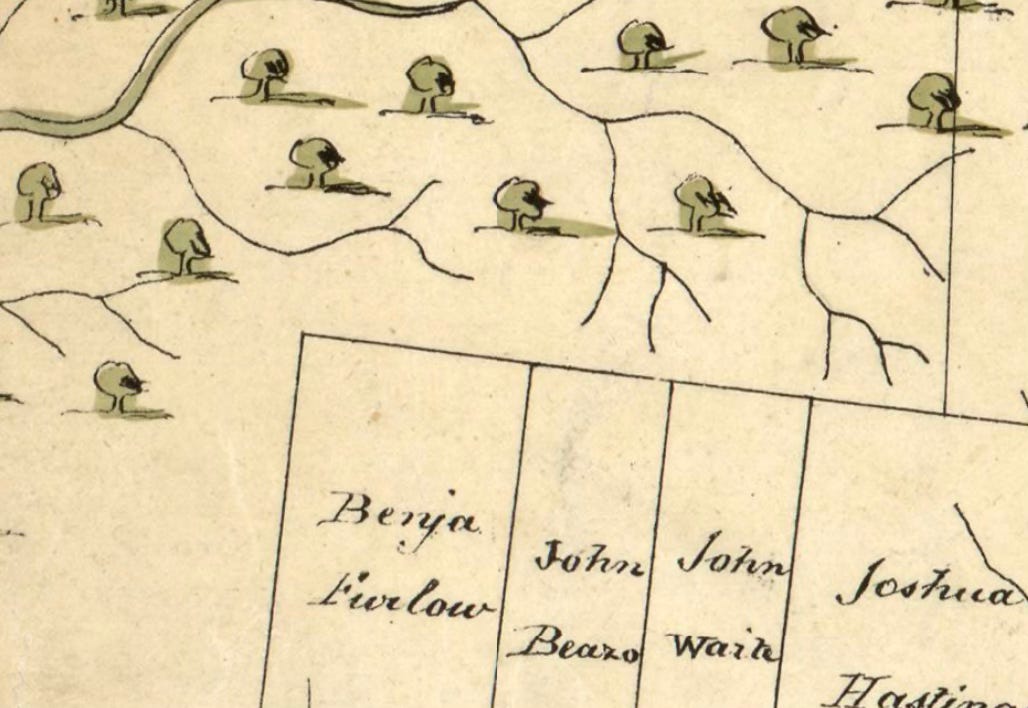 Benja
Furlow
John
Beazo
John
Waite
Joshua
Hasting